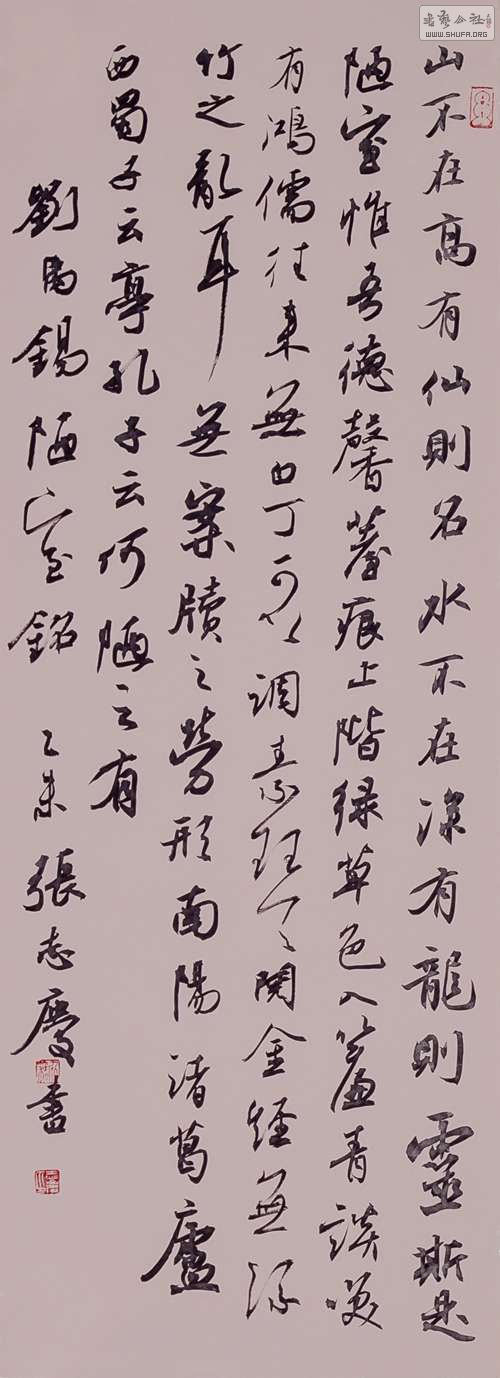 山不在高有仙則名水不在深有龍則靈斯是
陋室惟吾德馨薹痕上階綠草色入簾青談笑
有鴻儒往來無白丁可以調素琴閱金經無絲
竹之亂耳無案牘之勞形南陽諸葛廬
西蜀子云亭孔子云何陋之有
劉禹錫陋室銘 乙未 張志慶書
書藝公社
WWW.SHUFA.ORG